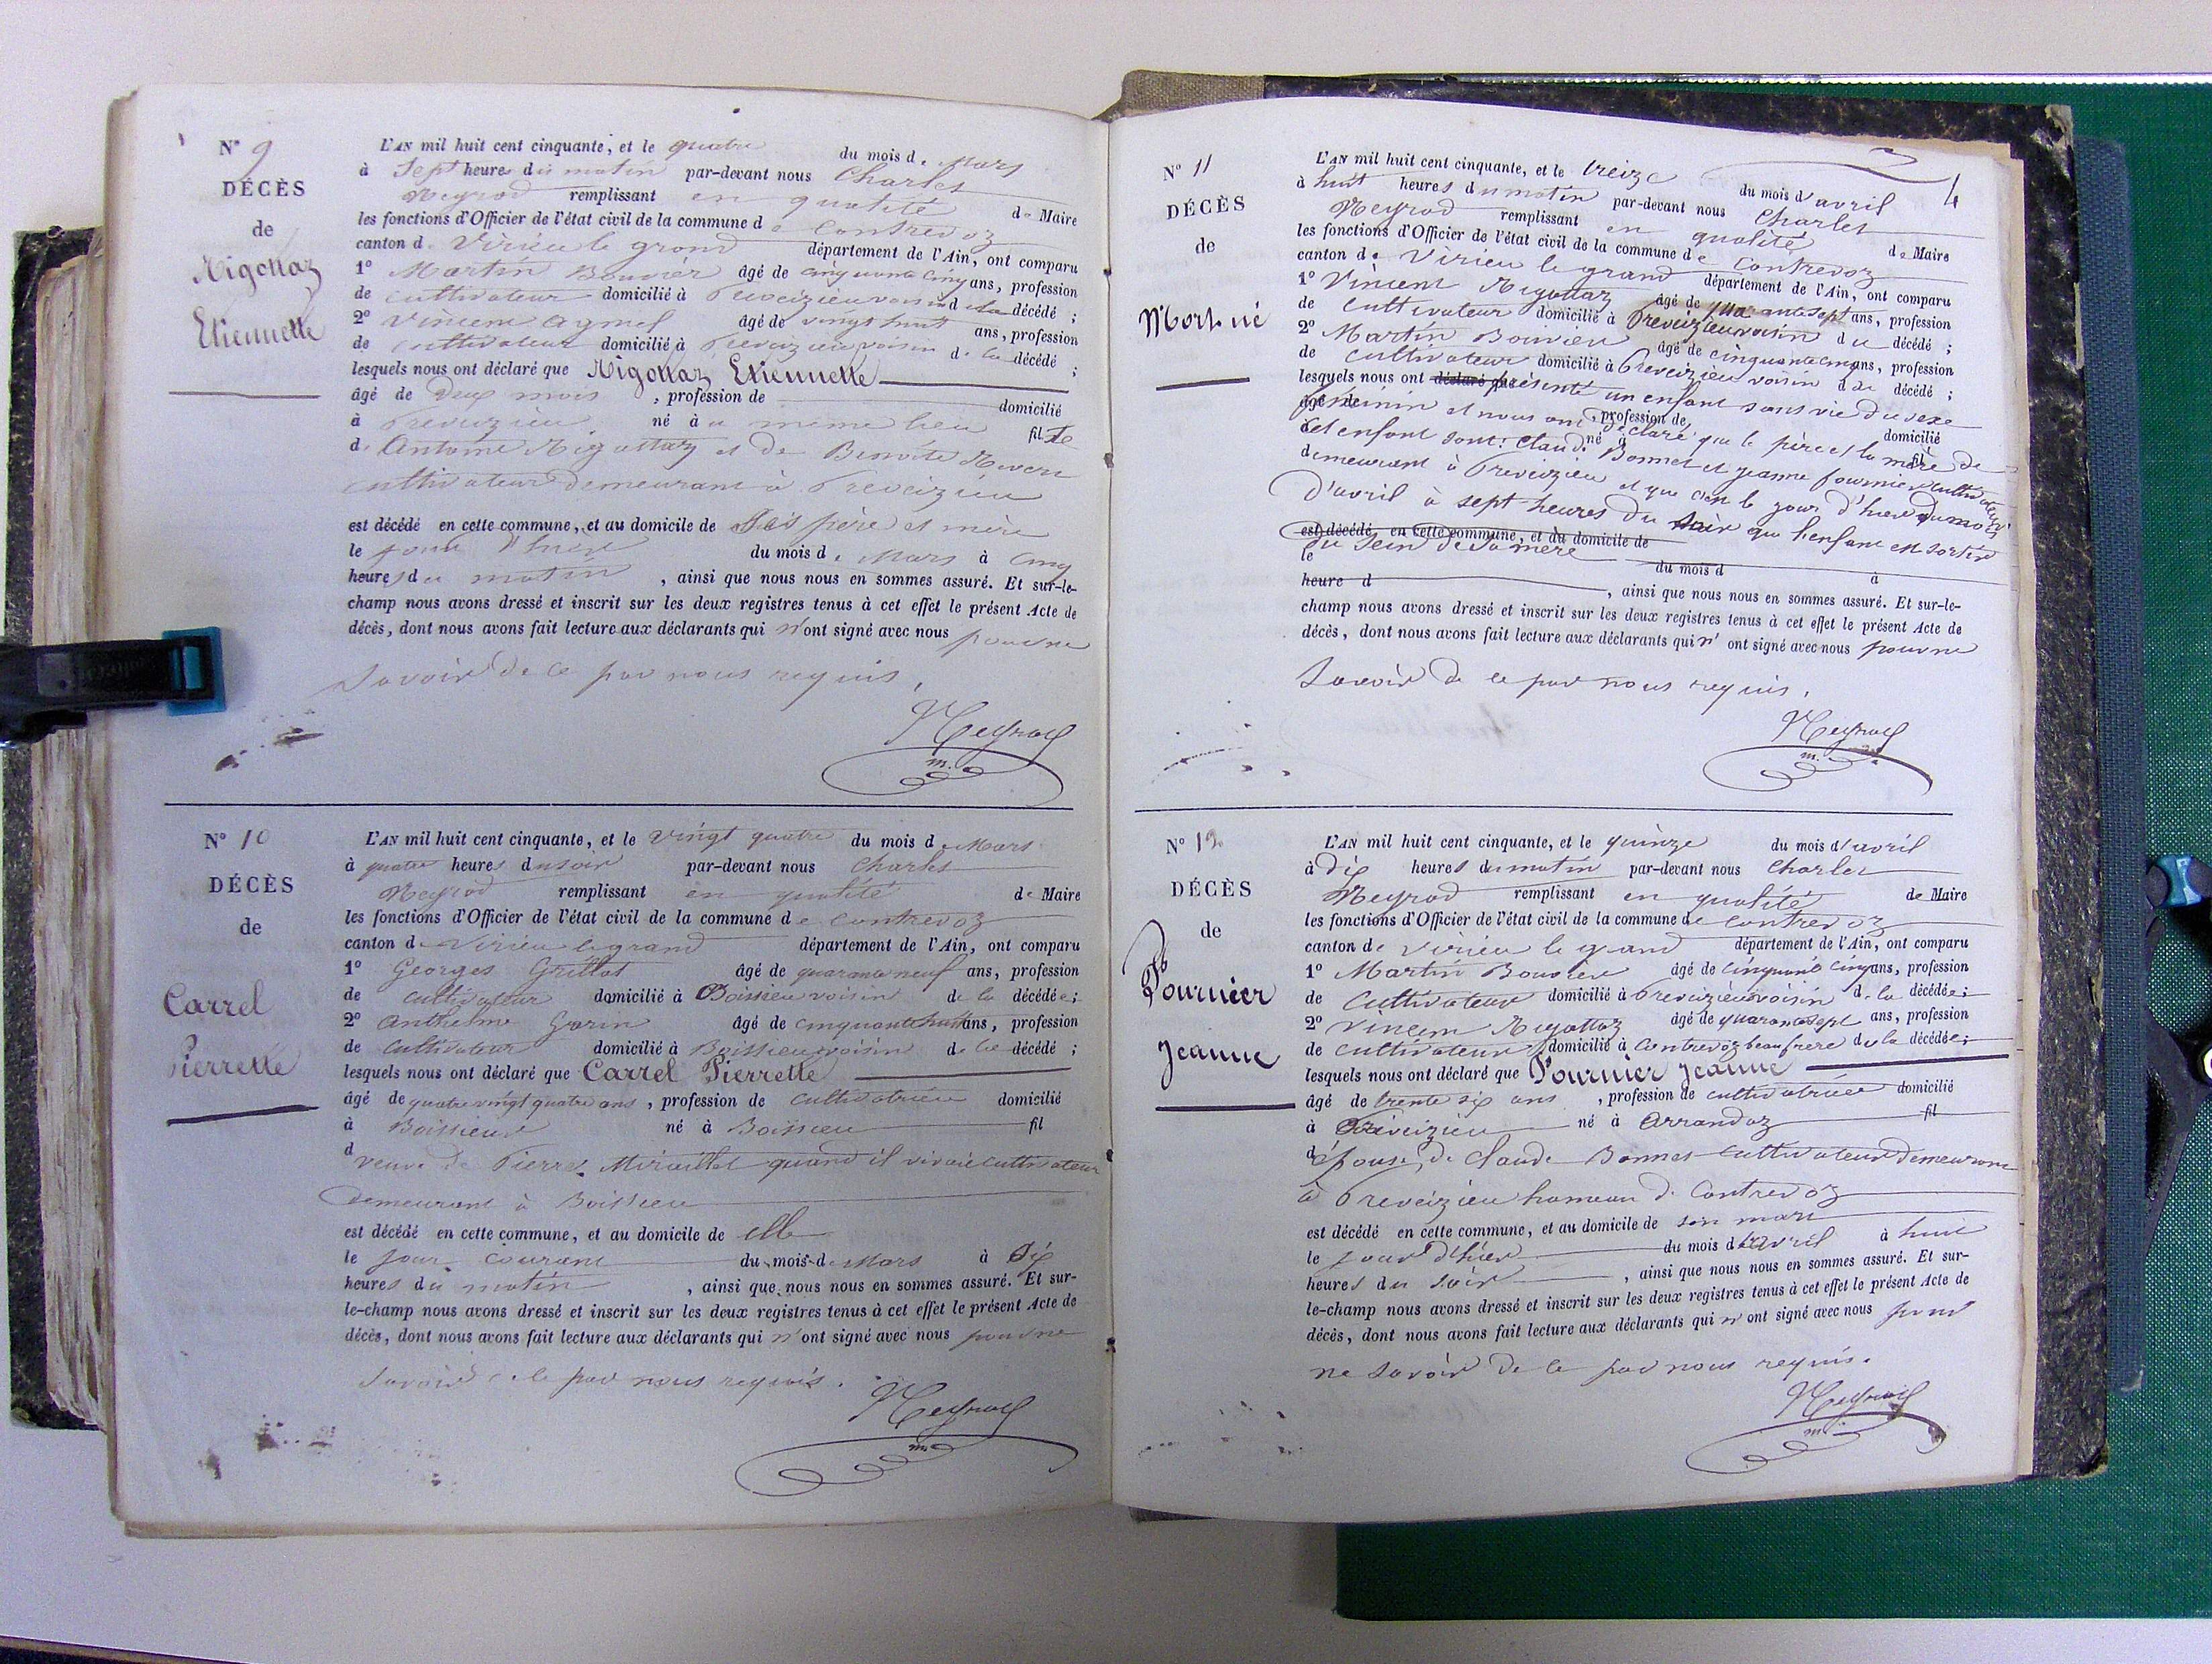 N° 9
DÉCÈS
de
Rigottaz
Etiennette
L'AN mil huit cent cinquante, et le quatre du mois de Mars
à Sept heures du matin par-devant nous Charles
Neyrod remplissant en qualité de Maire
les fonctions d'Officier de l'état civil de la commune de Contrevoz
canton de Virieu le grand département de l'Ain, ont comparu
1° Martin Bouvier âgé de cinquante cinq ans, profession
de cultivateur domicilié à Preveizieu voisin de la décédé ;
2° Vincent âgé de vingt huit ans, profession
de cultivateur domicilié à Preveizieu voisin de la décédé ;
lesquels nous ont déclaré que Rigottaz Etiennette
âgé de Deux mois , profession de domicilié
à Preveizieu né à au même lieu fille
de Antoine Rigottaz et de Benoite
cultivateur demeurant à Preveizieu
est décédé en cette commune, et au domicile de Ses père et mère
le jour d'hier du mois de Mars à cinq
heures du matin , ainsi que nous nous en sommes assuré. Et sur-le-
champ nous avons dressé et inscrit sur les deux registres tenus à cet effet le présent Acte de
décès, dont nous avons fait lecture aux déclarants qui n'ont signé avec nous pour ne
Savoir de ce par nous requis.
Neyrod
m.
N° 10
DÉCÈS
de
Carrel
Pierrette
L'AN mil huit cent cinquante, et le vingt quatre du mois de Mars
à quatre heures du soir par-devant nous Charles
Neyrod remplissant en qualité de Maire
les fonctions d'Officier de l'état civil de la commune de Contrevoz
canton de Virieu le grand département de l'Ain, ont comparu
1° Georges Grillot âgé de quarante neuf ans, profession
de cultivateur domicilié à Boissieu voisin de la décédée ;
2° Anthelme Garin âgé de cinquante huit ans, profession
de cultivateur domicilié à Boissieu voisin de la décédé ;
lesquels nous ont déclaré que Carrel Pierrette
âgé de quatre vingt quatre ans , profession de cultivatrice domicilié
à Boissieu né à Boissieu fil
d veuve de Pierre Miraillet quand il vivait cultivateur
demeurant à Boissieu
est décédé en cette commune, et au domicile de elle
le jour courant du mois de Mars à Six
heures du matin , ainsi que nous nous en sommes assuré. Et sur-
le-champ nous avons dressé et inscrit sur les deux registres tenus à cet effet le présent Acte de
décès, dont nous avons fait lecture aux déclarants qui n'ont signé avec nous pour ne
Savoir de ce par nous requis.
Neyrod
m.
4
N° 11
DÉCÈS
de
Mort né
L'AN mil huit cent cinquante, et le treize du mois d'avril
à huit heures du matin par-devant nous Charles
Neyrod remplissant en qualité de Maire
les fonctions d'Officier de l'état civil de la commune de Contrevoz
canton de Virieu le grand département de l'Ain, ont comparu
1° Vincent Rigottaz âgé de quarante sept ans, profession
de cultivateur domicilié à Preveizieu voisin du décédé ;
2° Martin Bouvier âgé de cinquante cinq ans, profession
de cultivateur domicilié à Preveizieu voisin du décédé ;
lesquels nous ont déclaré que présenté un enfant sans vie du sexe
âgé de féminin et nous ont , profession de déclaré que le père et la mère de domicilié
cet enfant sont : Claude né à Bonnet et jeanne fournier cultivateurs fil
demeurant à Preveizieu et que c'est le jour d'hier du mois
d'avril à sept heures du soir que l'enfant est sortie
est décédé en cette commune, et du domicile de
du sein de sa mère
le du mois d à
heure d , ainsi que nous nous en sommes assuré. Et sur-le-
champ nous avons dressé et inscrit sur les deux registres tenus à cet effet le présent Acte de
décès, dont nous avons fait lecture aux déclarants qui n'ont signé avec nous pour ne
Savoir de ce par nous requis.
Neyrod
m.
N° 12
DÉCÈS
de
Fournier
jeanne
L'AN mil huit cent cinquante, et le quinze du mois d'avril
à dix heures du matin par-devant nous Charles
Neyrod remplissant en qualité de Maire
les fonctions d'Officier de l'état civil de la commune de Contrevoz
canton de Virieu le grand département de l'Ain, ont comparu
1° Martin Bouvier âgé de cinquante cinq ans, profession
de cultivateur domicilié à Preveizieu voisin de la décédée ;
2° Vincent Rigottaz âgé de quarante sept ans, profession
de cultivateur domicilié à Contrevoz beau frère de la décédée ;
lesquels nous ont déclaré que Fournier jeanne
âgé de trente six ans , profession de cultivatrice domicilié
à Preveizieu né à Arrandaz fil
d'épouse de Claude Bonnet cultivateur demeurant
à Preveizieu hameau de Contrevoz
est décédé en cette commune, et au domicile de son mari
le jour d'hier du mois d'avril à huit
heures du soir , ainsi que nous nous en sommes assuré. Et sur-
le-champ nous avons dressé et inscrit sur les deux registres tenus à cet effet le présent Acte de
décès, dont nous avons fait lecture aux déclarants qui n'ont signé avec nous pour
ne savoir de ce par nous requis.
Neyrod
m.